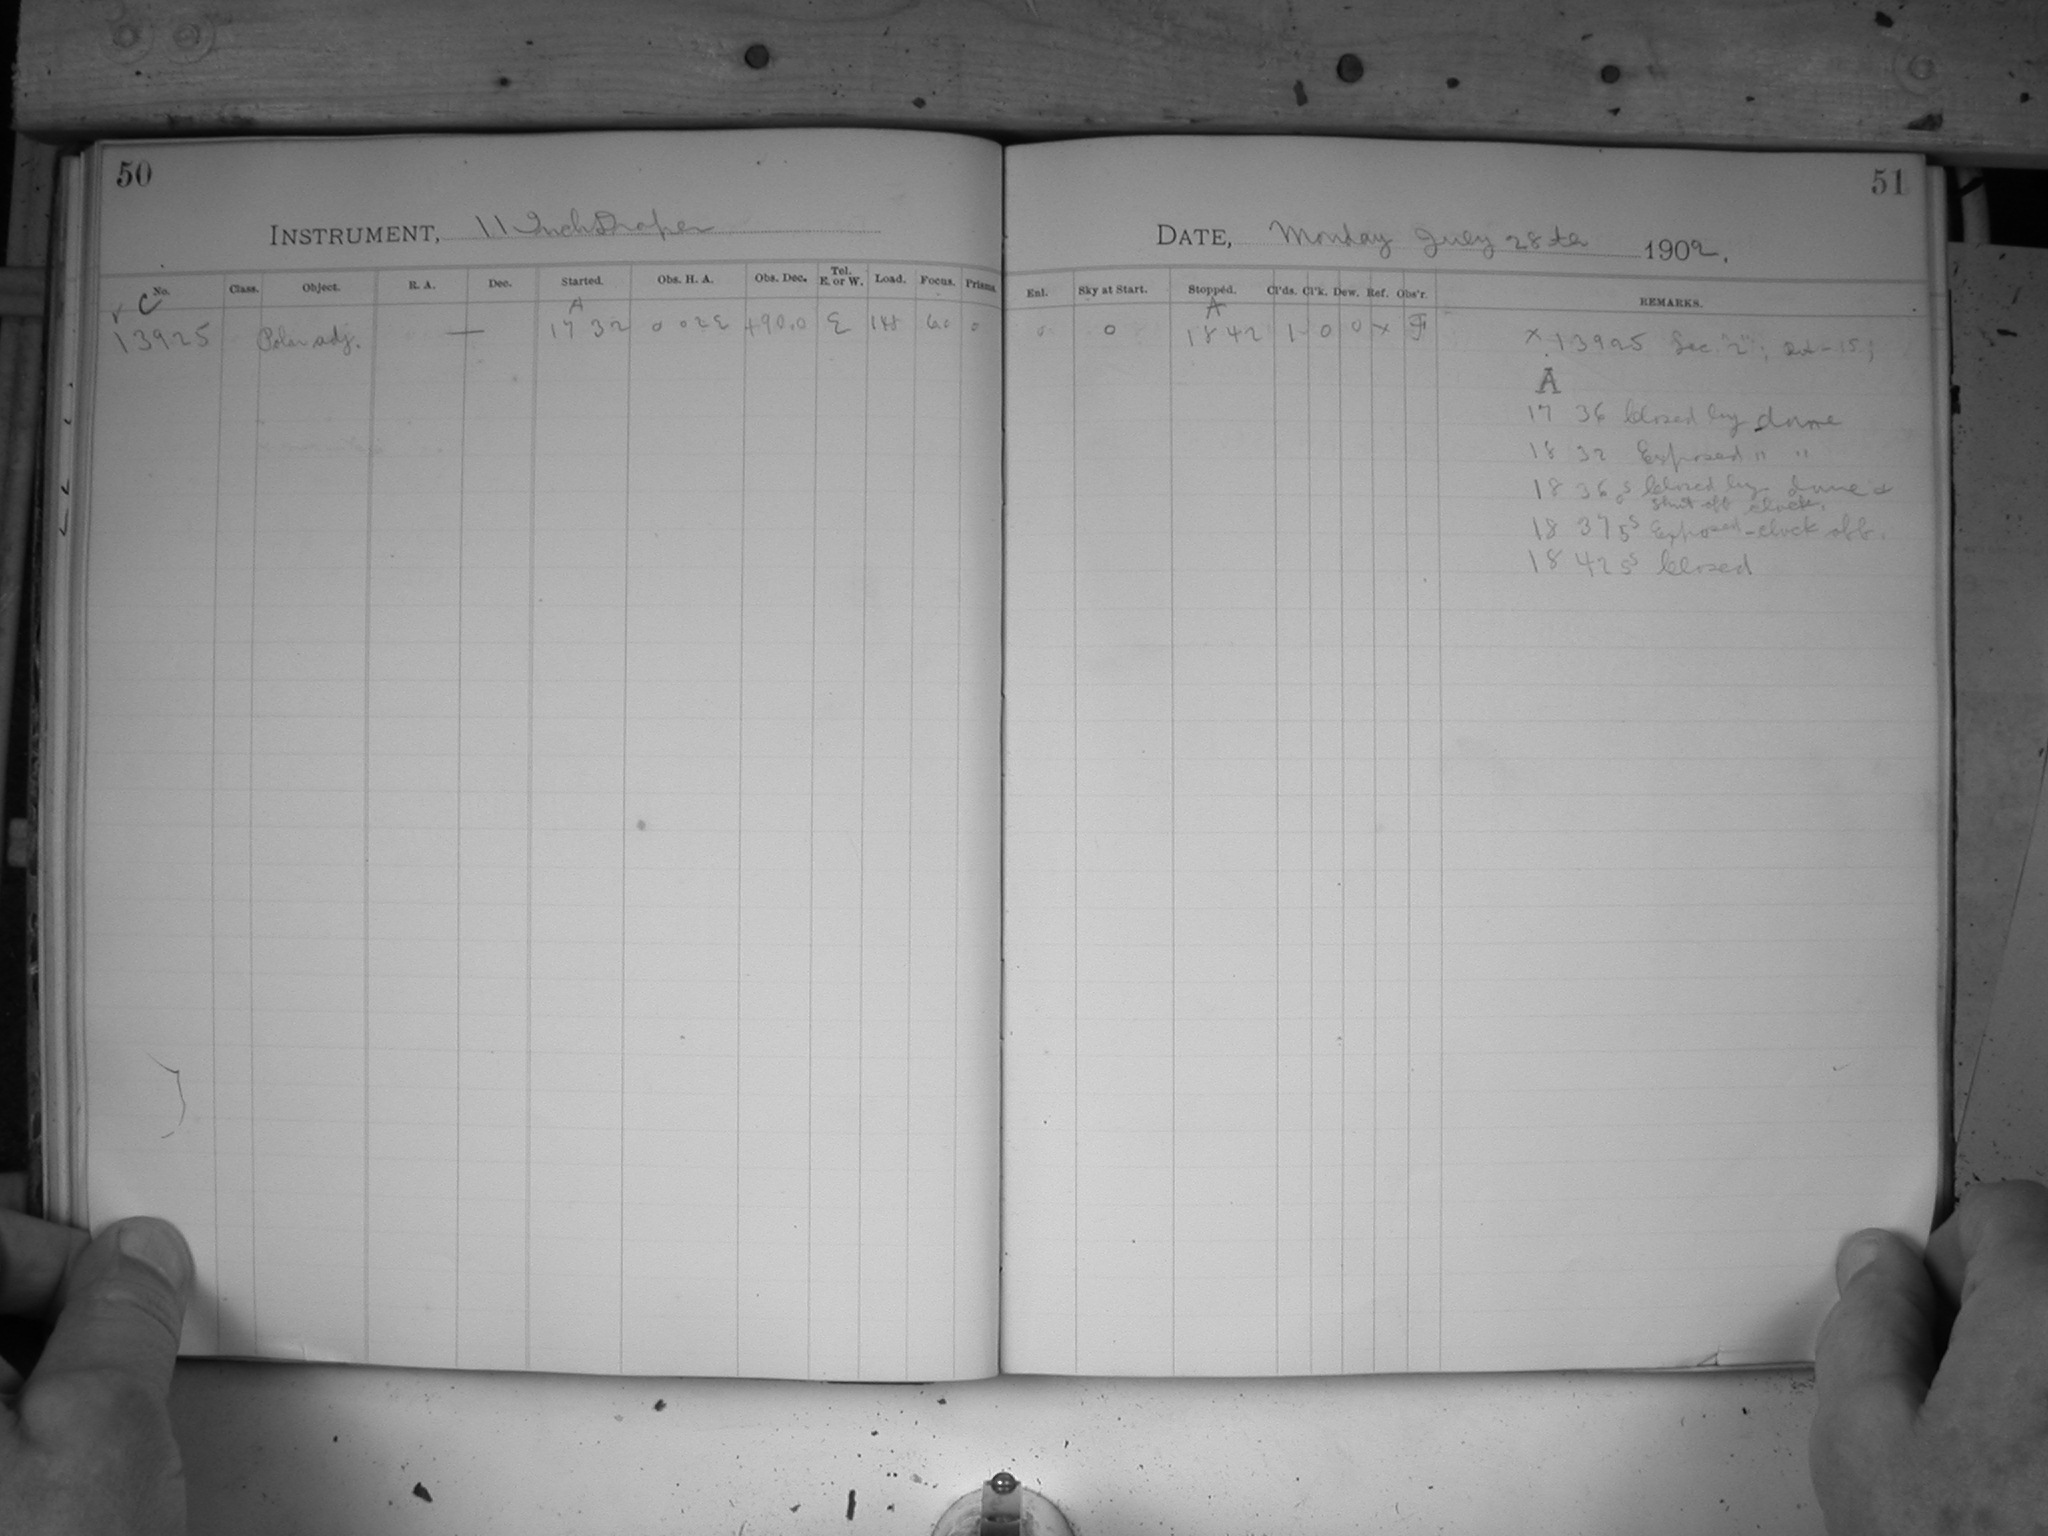 50
INSTRUMENT, 11 Inch Draper
No. Class. Object. R. A. Dec. Started. Obs. H. A. Obs. Dec. Tel. E. or W. Load. Focus. Prisms.
C A
13925 Polar adj. — 17 32 0 02 E +90.0 E 148 6.0 0
51
DATE, Monday July 28th 1902.
Enl. Sky at Start. Stopped. Cl'ds. Cl'k. Dew. Ref. Obs'r. REMARKS.
A
0 0 18 42 1 0 0 x F x 13925 Sec. "2";
A
17 36 Closed by dome
18 32 Exposed " "
18 36 0s Closed by dome &
shut off clock.
18 37 5s Exposed - clock off.
18 42 5s Closed